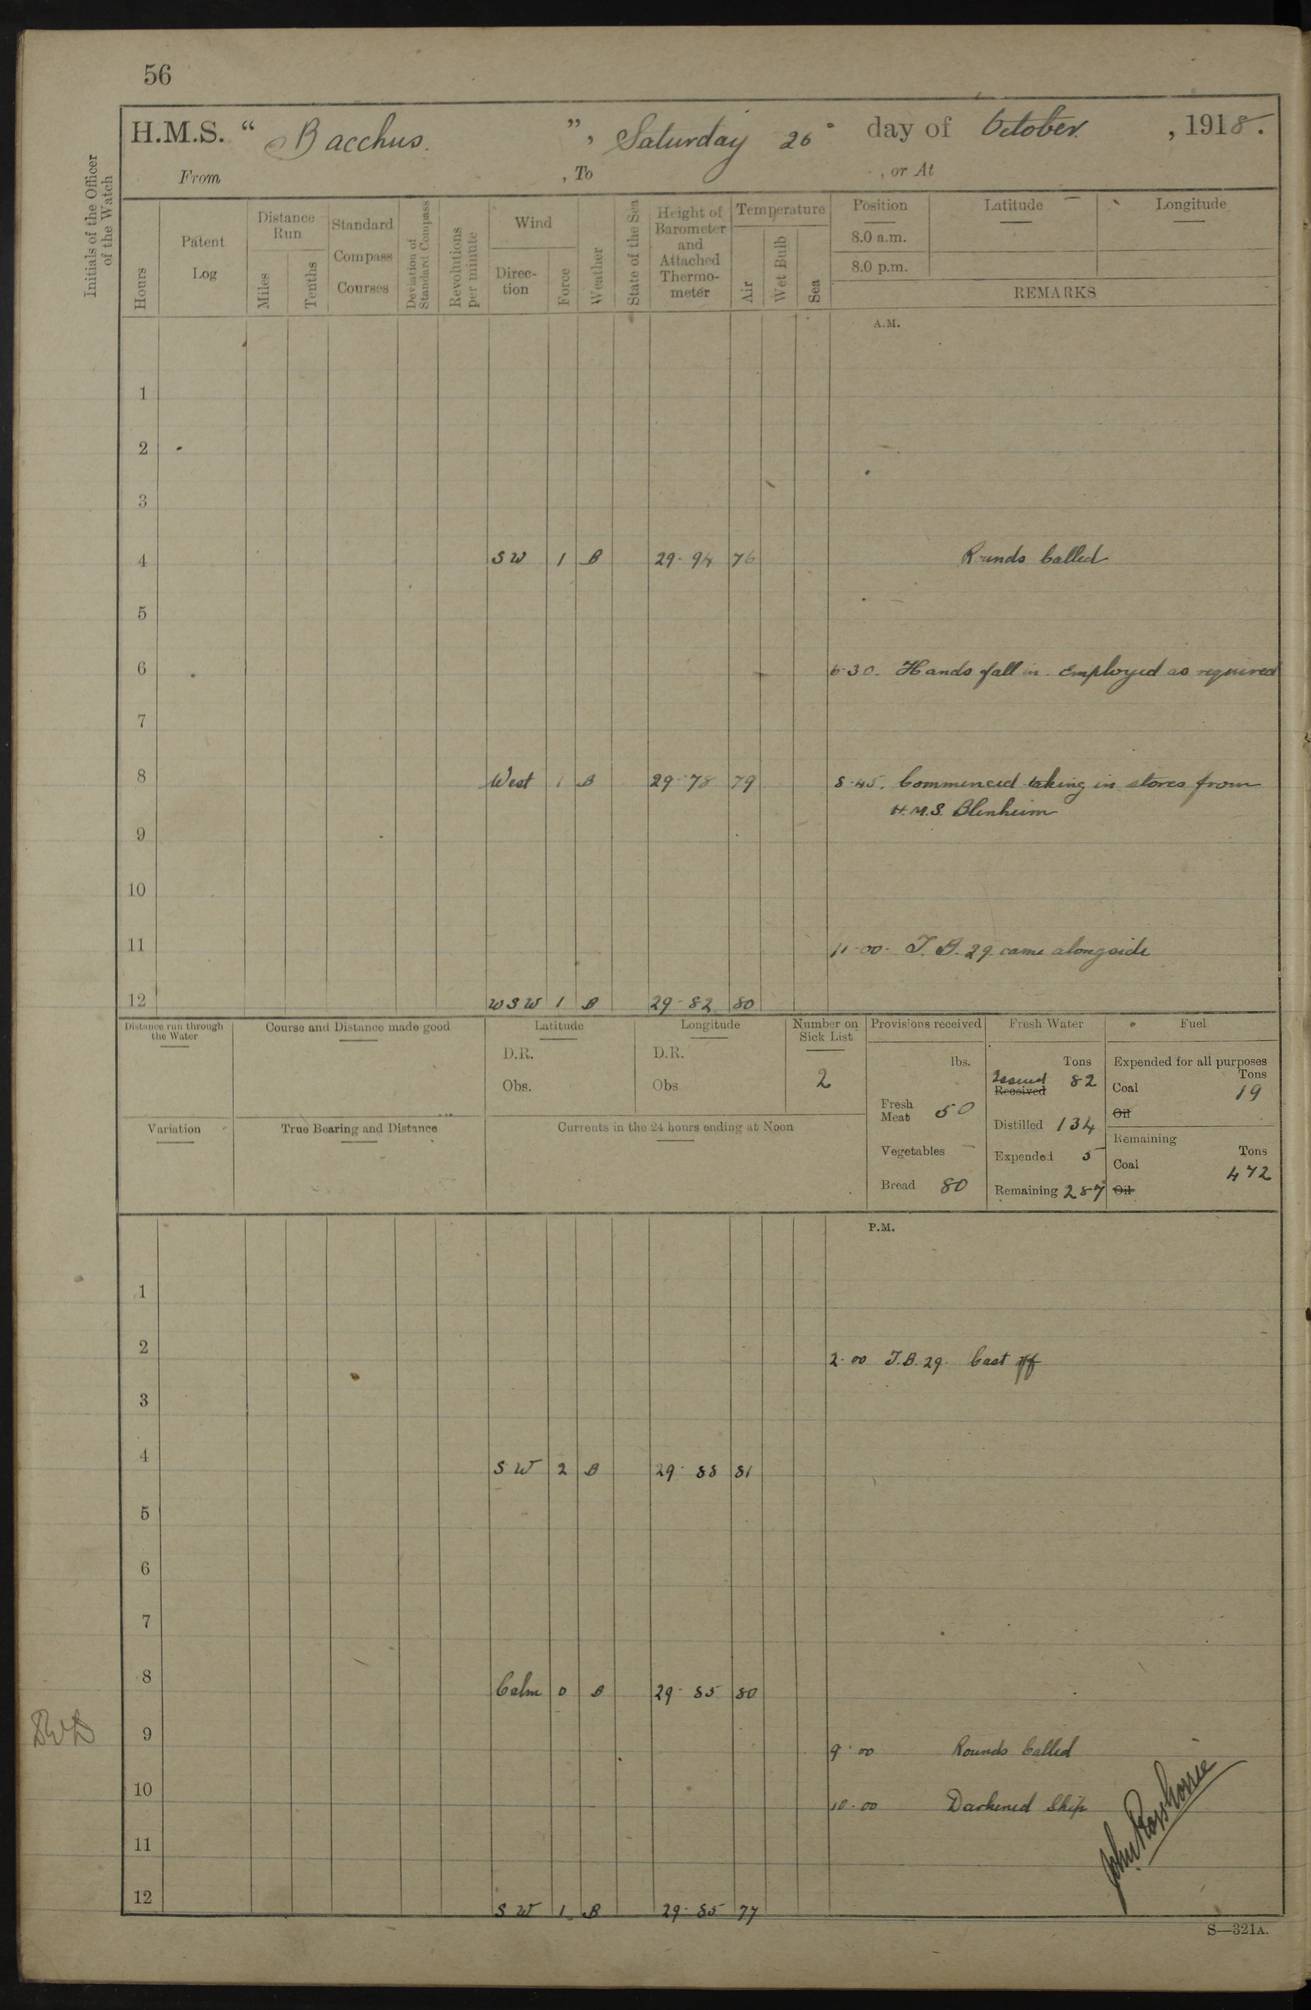 56
H.M.S. " Bacchus. ", Saturday 26 day of October, 1918.
From , To , or At
Initials of the Officer of the Watch
Hours
Patent Log
Distance Run
Miles
Tenths
Standard Compass Courses
Deviation of Standard Compass
Revolutions per minute
Wind
Direction
Force
Weather
State of the Sea
Height of Barometer and Attached Thermometer
Temperature
Air
Wet Bulb
Sea
Position
8.0 a.m.
8.0 p.m.
Latitude
Longitude
REMARKS
A.M.
1
2
3
4 SW 1 B 29·94 76 Rounds Called
5
6 6·30. Hands fall in. Employed as required
7
8 West 1 B 29·78 79 8·45. Commenced taking in stores from
H.M.S. Blenheim
9
10
11 11·00· T.B. 29 came alongside
12 WSW 1 B 29·82 80
Distance run through the Water
Course and Distance made good
Latitude
D.R.
Obs.
Longitude
D.R.
Obs
Number on Sick List
2
Provisions received
lbs.
Fresh Meat 50
Vegetables —
Bread 80
Fresh Water
Tons
Issued 82
Received
Distilled 134
Expended 5
Remaining 287
Fuel
Expended for all purposes
Tons
Coal 19
Oil
Remaining
Tons
Coal 472
Oil
Variation
True Bearing and Distance
Currents in the 24 hours ending at Noon
P.M.
1
2 2·00 T.B. 29. Cast off
3
4 SW 2 B 29·88 81
5
6
7
8 Calm 0 B 29·85 80
9 9·00 Rounds Called
10 10·00 Darkened Ship
11
12 SW 1 B 29·85 77
S—321A.